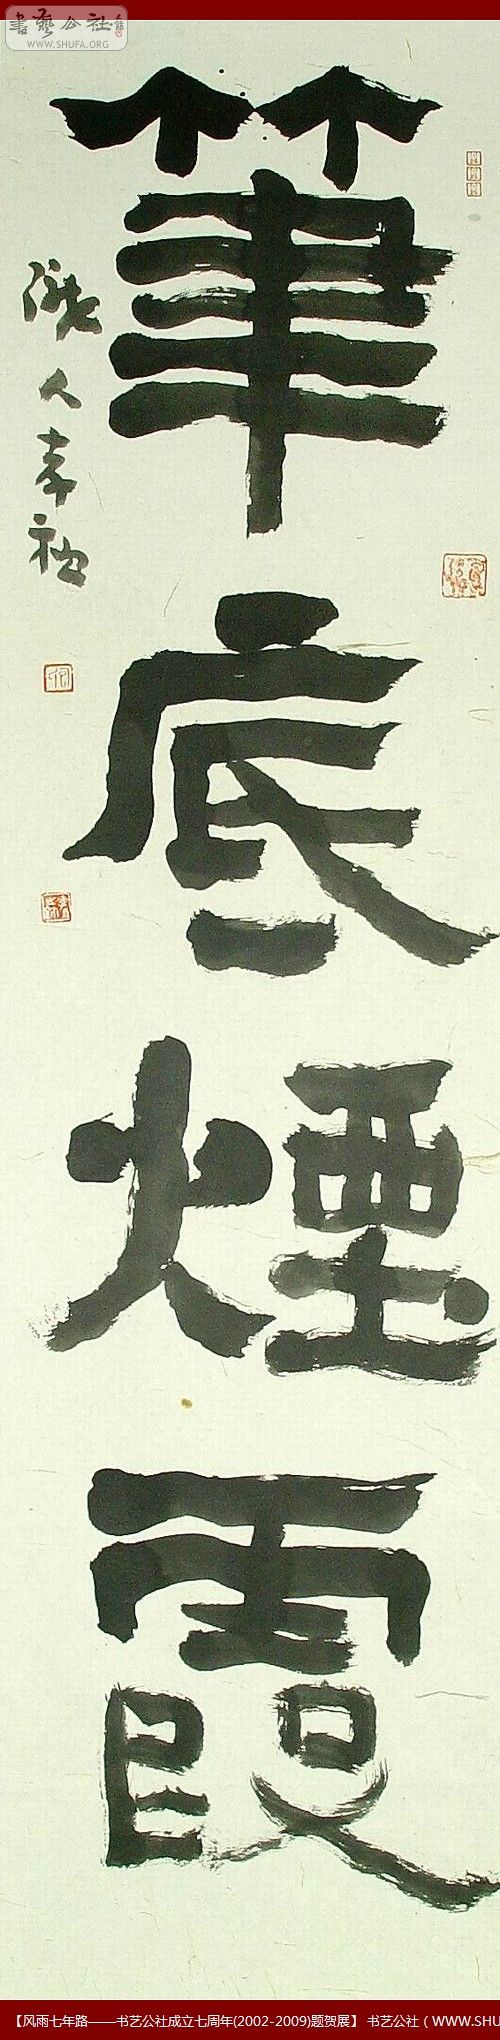 書藝公社
WWW.SHUFA.ORG
筆底煙霞
人孝祖
【风雨七年路——书艺公社成立七周年(2002-2009)题贺展】 书艺公社（WWW.SHU